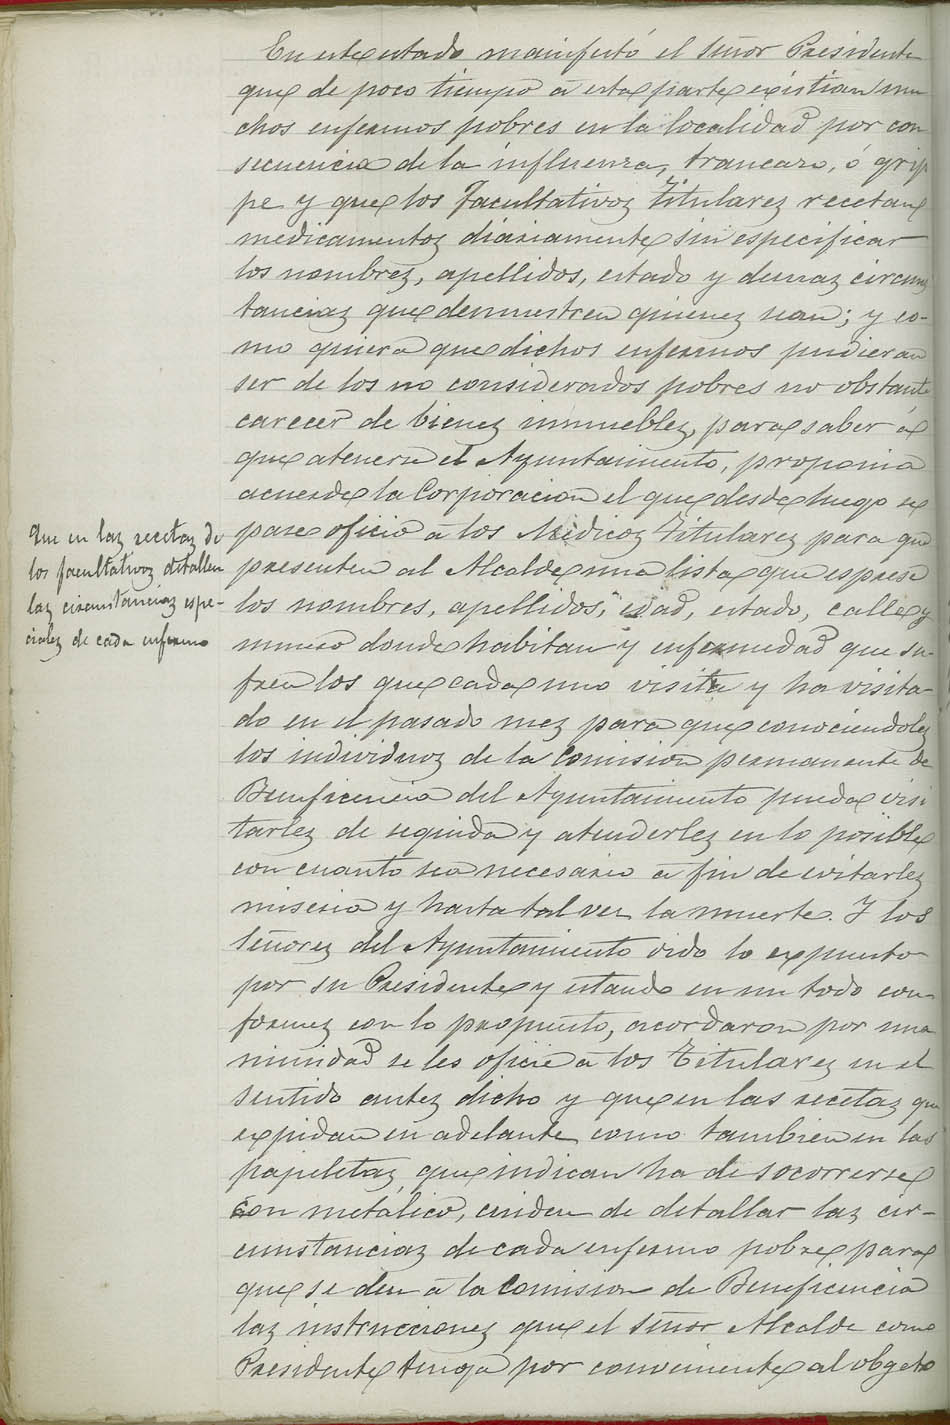 En este estado mainfestó el Señor Presidente
que de poco tiempo á esta parte existian mu
chos enfermos pobres en la localidad por con
secuencia de la influenza, trancazo, ó grip
pe y que los Facultativos Titulares recetan
medicamentos diáriamente sin especificar
los nombres, apellidos, estado y demas circuns
tancias que demuestren quienes sean; y co-
mo quiera que dichos enfermos pudieran
ser de los no considerados pobres no obstante
carecer de bienes inmuebles, para saber á
que atenerse el Ayuntamiento, proponia
acuerde la Corporacion el que desde luego se
pase oficio á los Médicos Titulares para que
presenten al Alcalde una lista que esprese
los nombres, apellidos, edad, estado, calle y
número donde habitan y enfermedad que su-
fren los que cada uno visita y ha visita-
do en el pasado mes para que conociendoles
los individuos de la Comision permanente de
Beneficencia del Ayuntamiento pueda visi
tarles de seguida y atenderles en lo posible
con cuanto sea necesario á fin de evitarles
miseria y hasta tal vez la muerte. Y los
Señores del Ayuntamiento oido lo expuesto
por su Presidente y estando en un todo con
formes con lo propuesto, acordaron por una
nimidad se les oficie á los Titulares en el
sentido antes dicho y que en las recetas que
expidan en adelante como tambien en las
papeletas que indican ha de socorrerse
con metálico, cuiden de detallar las cir-
cunstancias de cada enfermo pobre para
que se den á la Comision de Beneficencia
las instrucciones que el Señor Alcalde como
Presidente tenga por conveniente al obgeto
Que en las recetas de
los facultativos detallen
las circunstancias espe-
ciales de cada enfermo